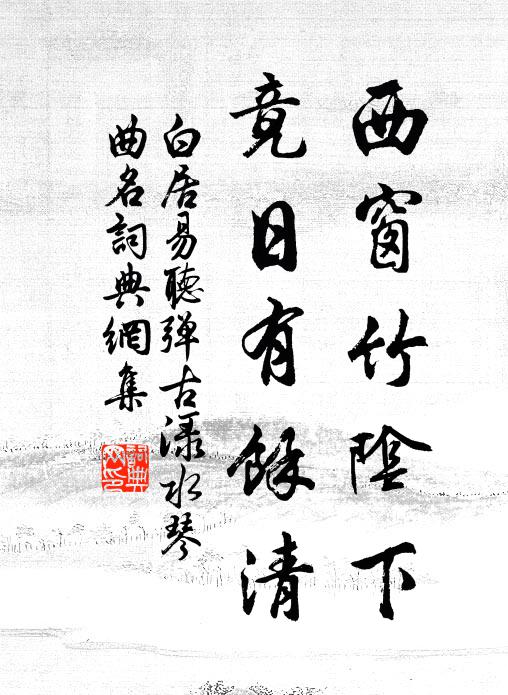 西窗竹陰下
竟日有餘清
白居易聽弹古淥水琴
曲名詞典網集
詞典
网印